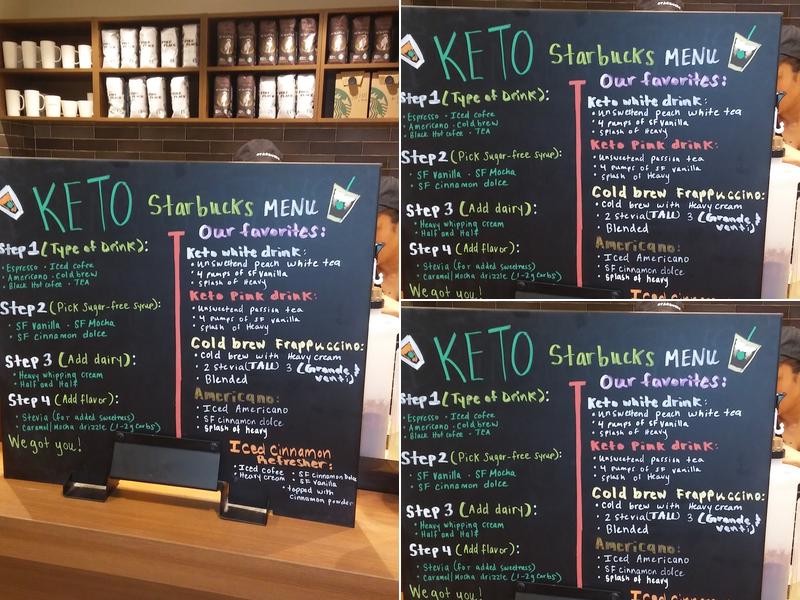 KETO Starbucks MENU
Step 1 (Type of Drink):
• Espresso • Iced coffee
• Americano • Cold brew
• Black Hot coffee • TEA
Step 2 (Pick Sugar-free syrup):
• SF Vanilla • SF Mocha
• SF cinnamon dolce
Step 3 (Add dairy):
• Heavy whipping cream
• Half and Half
Step 4 (Add flavor):
• Stevia (for added sweetness)
• Caramel/Mocha drizzle (1-2g carbs)
We got you!
Our favorites:
Keto white drink:
• unsweetend peach white tea
• 4 pumps of SF Vanilla
• splash of Heavy
Keto Pink drink:
• unsweetend passion tea
• 4 pumps of SF vanilla
• splash of Heavy
Cold brew Frappuccino:
• Cold brew with Heavy cream
• 2 stevia (TALL) 3 (Grande & venti)
• Blended
Americano:
• Iced Americano
• SF cinnamon dolce
• splash of heavy
Iced Cinnamon
Refresher:
• Iced coffee
• Heavy cream
• SF Cinnamon Dolce
• SF Vanilla
• topped with
cinnamon powder
KETO Starbucks MENU
Step 1 (Type of Drink):
• Espresso • Iced coffee
• Americano • Cold brew
• Black Hot coffee • TEA
Step 2 (Pick Sugar-free syrup):
• SF Vanilla • SF Mocha
• SF cinnamon dolce
Step 3 (Add dairy):
• Heavy whipping cream
• Half and Half
Step 4 (Add flavor):
• Stevia (for added sweetness)
• Caramel/Mocha drizzle (1-2g carbs)
We got you!
Our favorites:
Keto white drink:
• unsweetend peach white tea
• 4 pumps of SF Vanilla
• splash of Heavy
Keto Pink drink:
• unsweetend passion tea
• 4 pumps of SF vanilla
• splash of Heavy
Cold brew Frappuccino:
• Cold brew with Heavy cream
• 2 stevia (TALL) 3 (Grande & venti)
• Blended
Americano:
• Iced Americano
• SF cinnamon dolce
• splash of heavy
Iced Cinnamon
KETO Starbucks MENU
Step 1 (Type of Drink):
• Espresso • Iced coffee
• Americano • Cold brew
• Black Hot coffee • TEA
Step 2 (Pick Sugar-free syrup):
• SF Vanilla • SF Mocha
• SF cinnamon dolce
Step 3 (Add dairy):
• Heavy whipping cream
• Half and Half
Step 4 (Add flavor):
• Stevia (for added sweetness)
• Caramel/Mocha drizzle (1-2g carbs)
We got you!
Our favorites:
Keto white drink:
• unsweetend peach white tea
• 4 pumps of SF Vanilla
• splash of Heavy
Keto Pink drink:
• unsweetend passion tea
• 4 pumps of SF vanilla
• splash of Heavy
Cold brew Frappuccino:
• Cold brew with Heavy cream
• 2 stevia (TALL) 3 (Grande & venti)
• Blended
Americano:
• Iced Americano
• SF cinnamon dolce
• splash of heavy
Iced Cinnamon